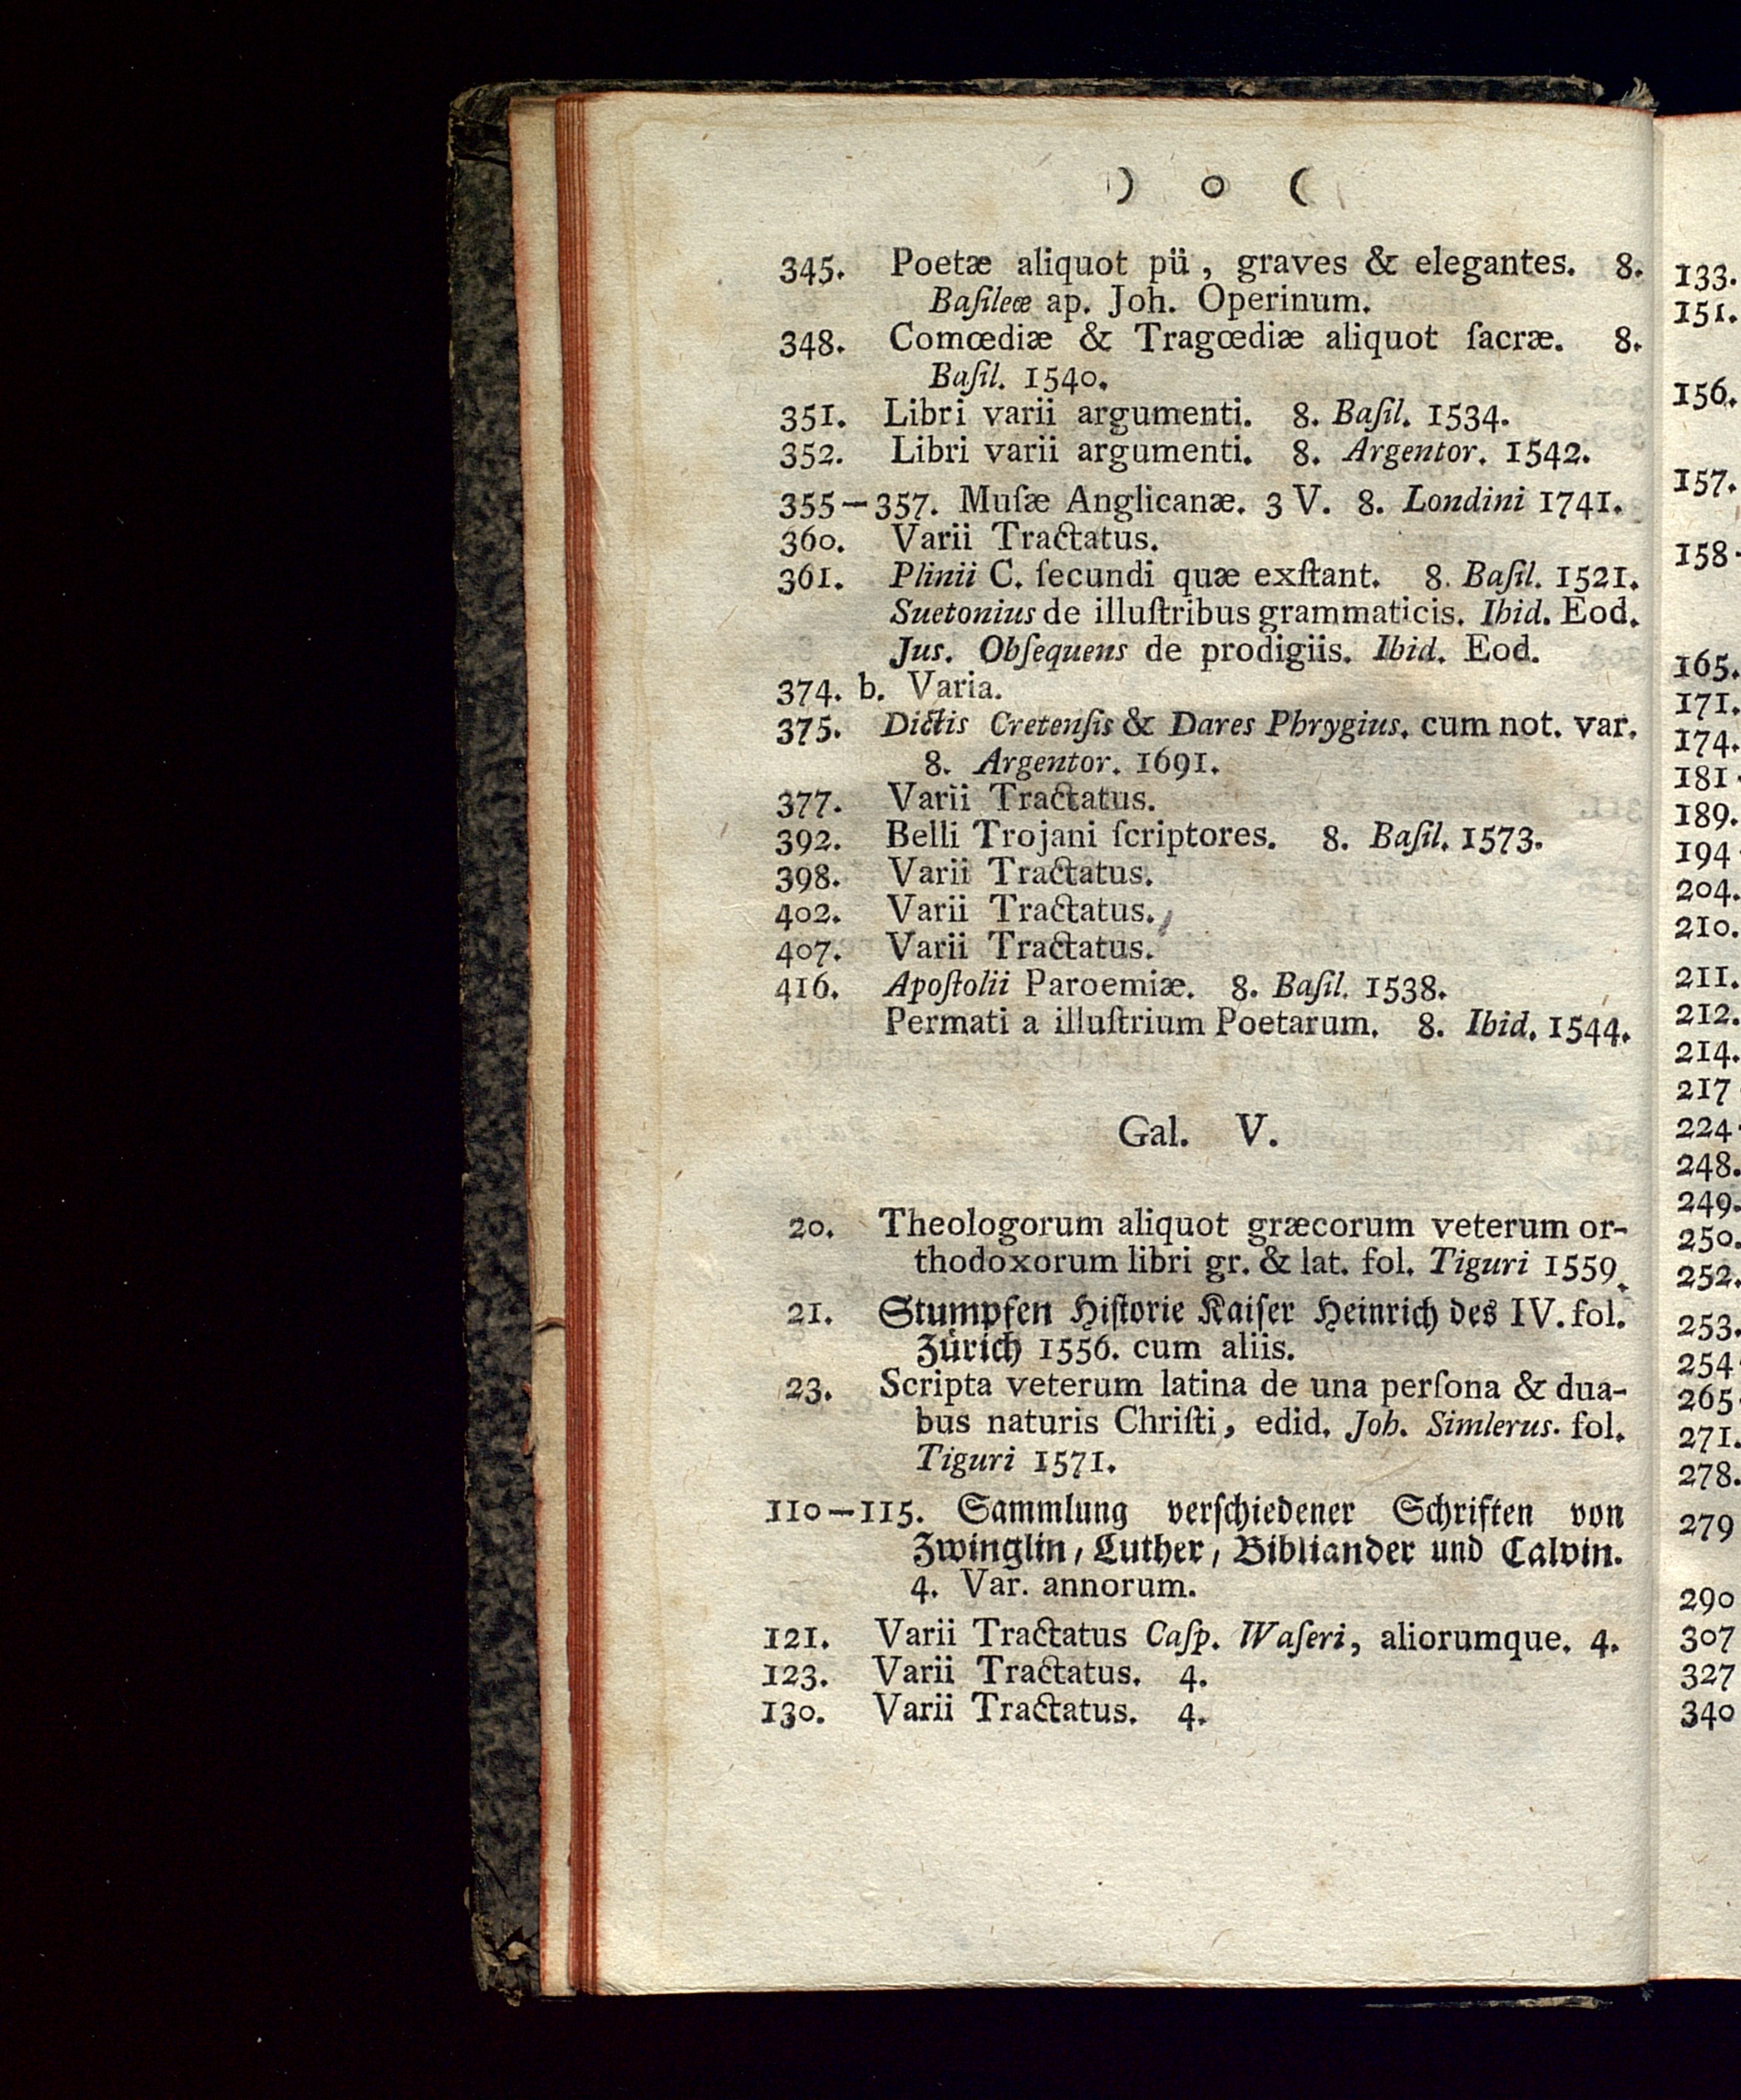 ) o (
345. Poetæ aliquot pü, graves & elegantes. 8.
Baſileæ ap. Joh. Operinum.
348. Comœdiæ & Tragœdiæ aliquot ſacræ. 8.
Baſil. 1540.
351. Libri varii argumenti. 8. Baſil. 1534.
352. Libri varii argumenti. 8. Argentor. 1542.
355—357. Muſæ Anglicanæ. 3 V. 8. Londini 1741.
360. Varii Tractatus.
361. Plinii C. ſecundi quæ exſtant. 8. Baſil. 1521.
Suetonius de illuſtribus grammaticis. Ibid. Eod.
Jus. Obſequens de prodigiis. Ibid. Eod.
374. b. Varia.
375. Dictis Cretenſis & Dares Phrygius. cum not. var.
8. Argentor. 1691.
377. Varii Tractatus.
392. Belli Trojani ſcriptores. 8. Baſil. 1573.
398. Varii Tractatus.
402. Varii Tractatus.
407. Varii Tractatus.
416. Apoſtolii Paroemiæ. 8. Baſil. 1538.
Permati a illuſtrium Poetarum. 8. Ibid. 1544.
Gal. V.
20. Theologorum aliquot græcorum veterum or-
thodoxorum libri gr. & lat. fol. Tiguri 1559.
21. Stumpfen Hiſtorie Kaiſer Heinrich des IV. fol.
Zürich 1556. cum aliis.
23. Scripta veterum latina de una perſona & dua-
bus naturis Chriſti, edid. Joh. Simlerus. fol.
Tiguri 1571.
110—115. Sammlung verſchiedener Schriften von
Zwinglin, Luther, Bibliander und Calvin.
4. Var. annorum.
121. Varii Tractatus Caſp. Waſeri, aliorumque. 4.
123. Varii Tractatus. 4.
130. Varii Tractatus. 4.
133.
151.
156.
157.
158
165.
171.
174.
181
189.
194
204.
210.
211.
212.
214.
217
224
248.
249.
250.
252.
253.
254
265
271.
278.
279
290
307
327
340